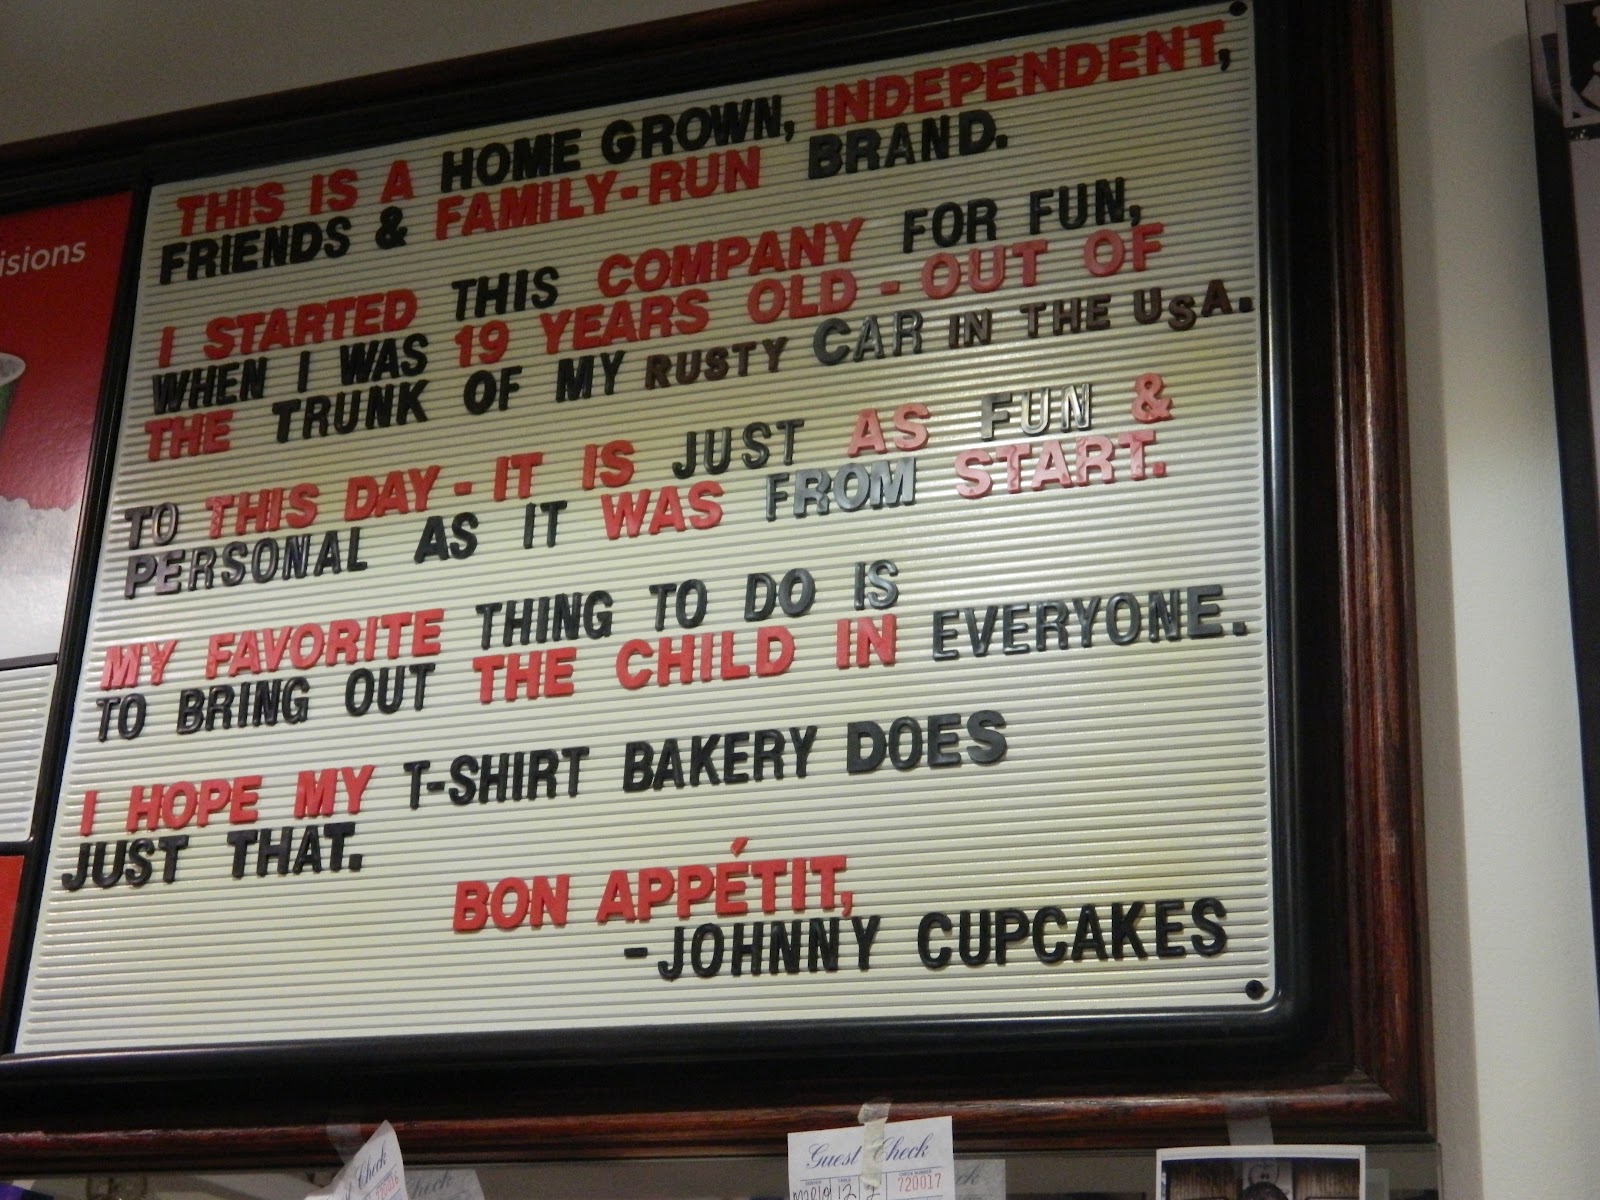 THIS IS A HOME GROWN, INDEPENDENT,
FRIENDS & FAMILY-RUN BRAND.
I STARTED THIS COMPANY FOR FUN,
WHEN I WAS 19 YEARS OLD - OUT OF
THE TRUNK OF MY RUSTY CAR IN THE USA.
TO THIS DAY - IT IS JUST AS FUN &
PERSONAL AS IT WAS FROM START.
MY FAVORITE THING TO DO IS
TO BRING OUT THE CHILD IN EVERYONE.
I HOPE MY T-SHIRT BAKERY DOES
JUST THAT.
BON APPÉTIT,
-JOHNNY CUPCAKES
isions
Check
720016
heck
Guest Check
720017